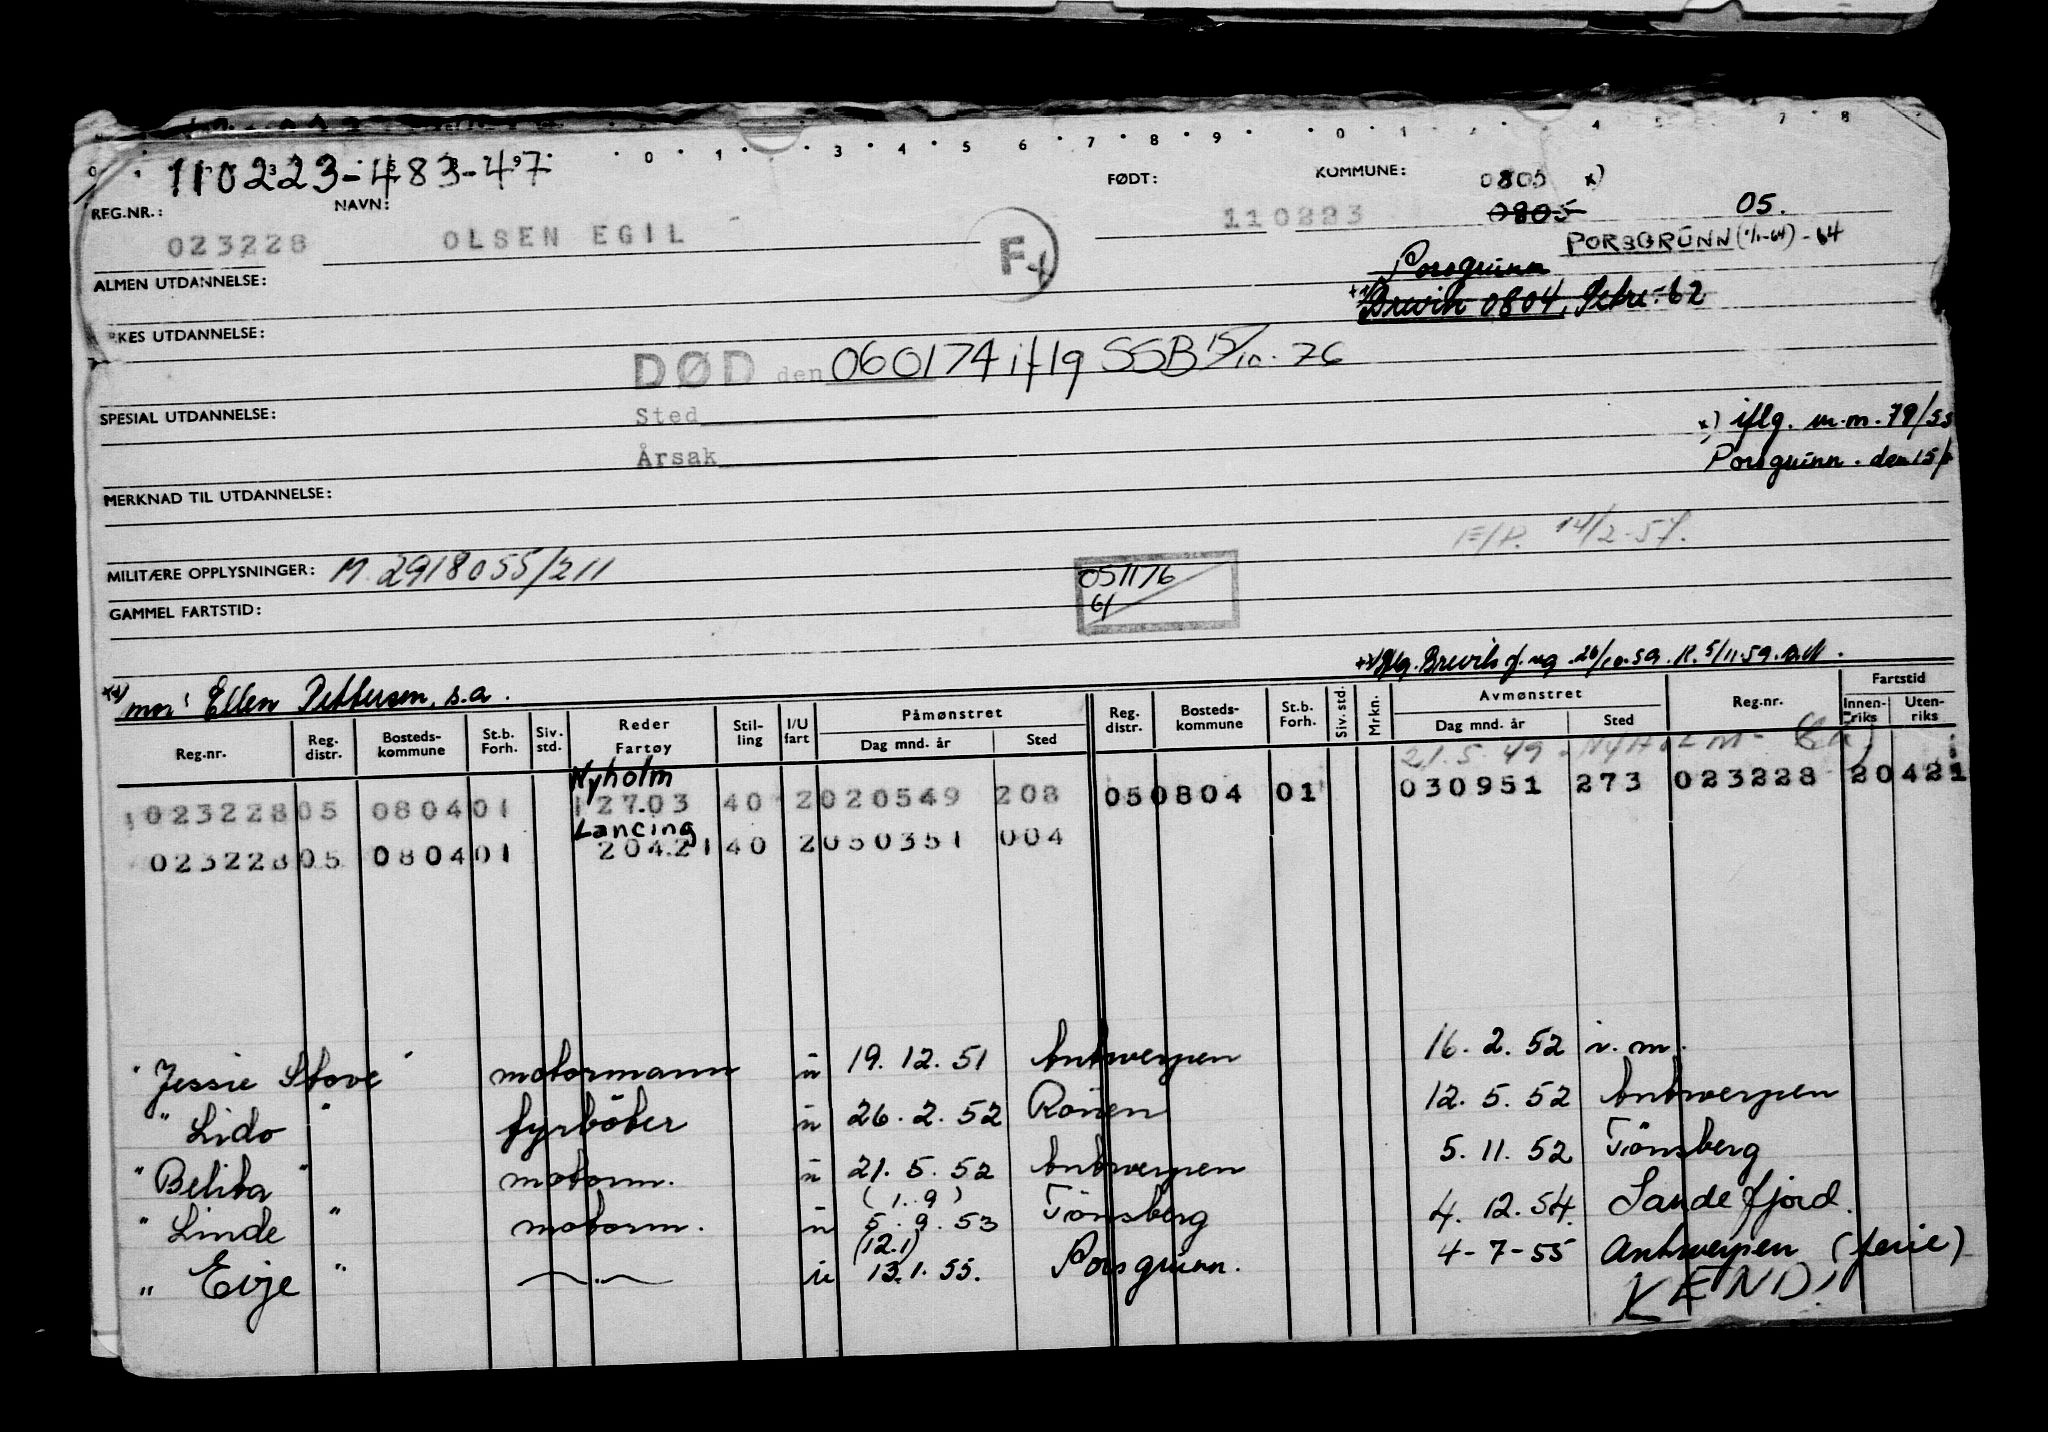 110223-483-47
REG.NR.: NAVN: FØDT: KOMMUNE: 0805 x)
023228 OLSEN EGIL F 110223 0805 05.
PORSGRUNN (1/1-64) - 64
ALMEN UTDANNELSE: Porsgrunn
Brevik 0804, -62
RKES UTDANNELSE:
DØD den 060174 iflg SSB 15/10-76
SPESIAL UTDANNELSE: Sted
x) iflg. m.m. 79/55
Årsak
Porsgrunn. den 15/
MERKNAD TIL UTDANNELSE:
14/2-57.
MILITÆRE OPPLYSNINGER: M. 2918055/211
051176
GAMMEL FARTSTID:
Iflg. Brevik 26/10.59. R. 5/11.59.
mor: Ellen Pettersen, s.a.
Reg.nr. Reg. distr. Bosteds-kommune St.b. Forh. Siv. std. Reder Fartøy Stil-ling I/U fart Påmønstret Dag mnd. år Sted Reg. distr. Bosteds-kommune St.b. Forh. Siv. std. Mrkn. Avmønstret Dag mnd. år Sted Reg.nr. Fartstid Innen-riks Uten-riks
21.5.49 - NYHOLM
Nyholm
023228 05 0804 01 12703 40 2 020549 208 05 0804 01 030951 273 023228 20421
Lancing
023228 05 0804 01 20421 40 2 050351 004
" Jessie Stove " motormann u 19.12.51 Antwerpen 16.2.52 i.m.
" Lido " fyrböter u 26.2.52 Rouen 12.5.52 Antwerpen
" Belita " motorm. u 21.5.52 Antwerpen 5.11.52 Tönsberg
(1.9)
" Linde " motorm. u 5.9.53 Tönsberg 4.12.54. Sandefjord.
(12.1)
" Evje " u 13.1.55. Porsgrunn. 4-7-55 Antwerpen (ferie)
KENDI